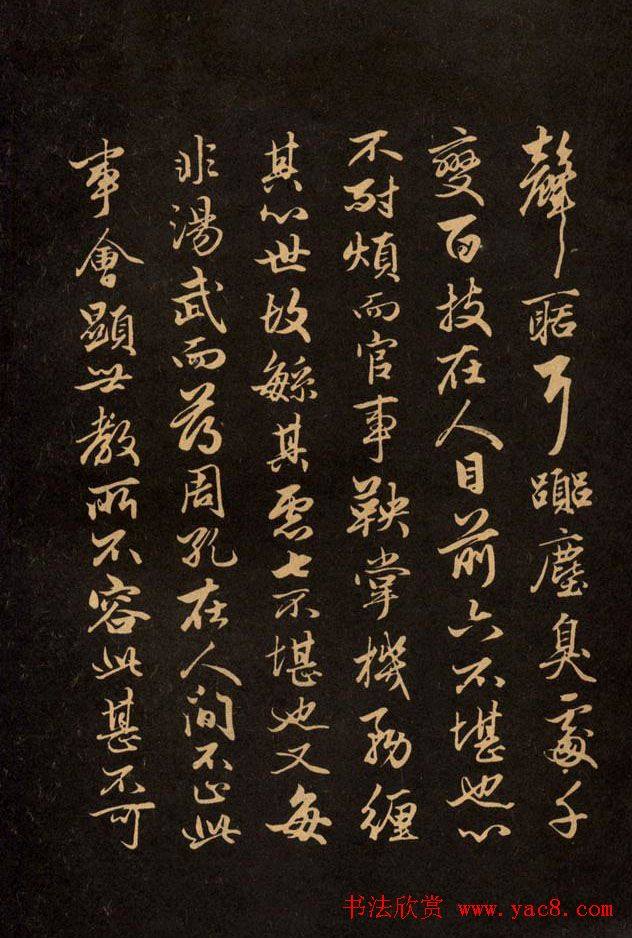 聲聒耳嚻塵臭處千
變百技在人目前六不堪也心
不耐煩而官事鞅掌機務纏
其心世故繁其慮七不堪也又每
非湯武而薄周孔在人間不止此
事會顯世教所不容此甚不可
书法欣赏 www.yac8.com